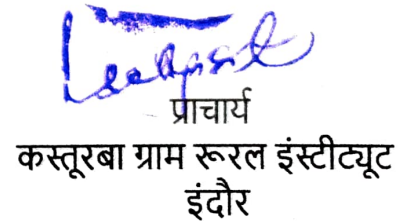 प्राचार्य
कस्तूरबा ग्राम रूरल इंस्टीट्यूट
इंदौर